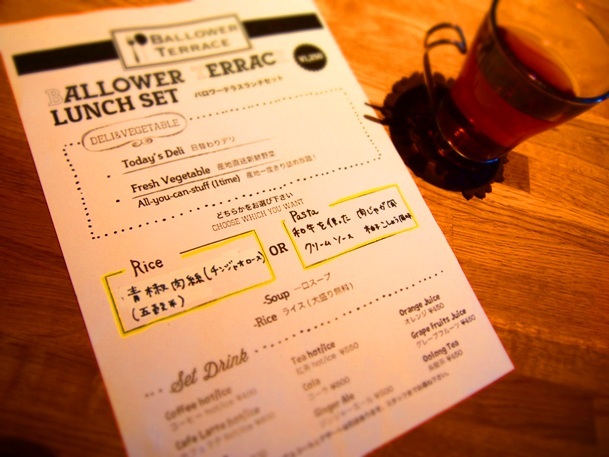 BALLOWER
TERRACE
BALLOWER TERRAC
LUNCH SET バロワーテラスランチセット
DELI&VEGETABLE
Today's Deli 日替わりデリ
Fresh Vegetable 産地直送新鮮野菜
All-you-can-stuff (1time)
どちらかをお選び下さい
CHOOSE WHICH YOU WANT
Rice
青椒肉絲(チンジャオロース)
(五穀米)
OR
Pasta
和牛を使った 肉じゃが風
クリームソース 柚子こしょう風味
Soup 一口スープ
Rice ライス(大盛り無料)
Set Drink
Coffee hot/ice
コーヒー hot/ice
Cafe Latte hot/ice
Tea hot/ice
紅茶 hot/ice ¥550
Cola
コーラ ¥600
Ginger Ale
ジンジャーエール
Orange Juice
オレンジ ¥650
Grape Fruits Juice
グレープフルーツ ¥650
Oolong Tea
烏龍茶 ¥650